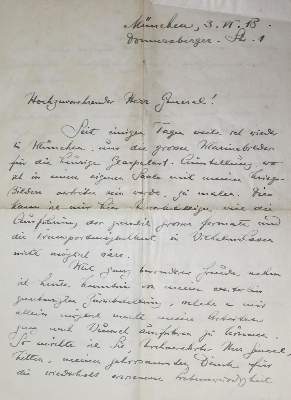 München, 3. VI. 18.
Donnersberger Str. 1
Hochzuverehrender Herr General!
Seit einigen Tagen weile ich wieder
in München, um die grossen Marinebilder
für die heurige Glaspalast-Ausstellung, wo
ich in einem eigenen Saale mit meinen Kriegs-
Bildern vertreten sein werde, zu malen. Dies
kann ich nur hier, da die
Ausführung der ziemlich grossen Formate und
die Transportmöglichkeit in
nicht möglich wäre.
Mit ganz besonderer Freude nahm
ich heute Kenntnis von meiner weiteren
welche es mir
allein möglich macht meine Arbeiten
ganz nach Wunsch ausführen zu können.
So möchte ich Sie, hochverehrter Herr General,
bitten, meinen gehorsamsten Dank für
die wiederholt erwiesene Liebenswürdigkeit